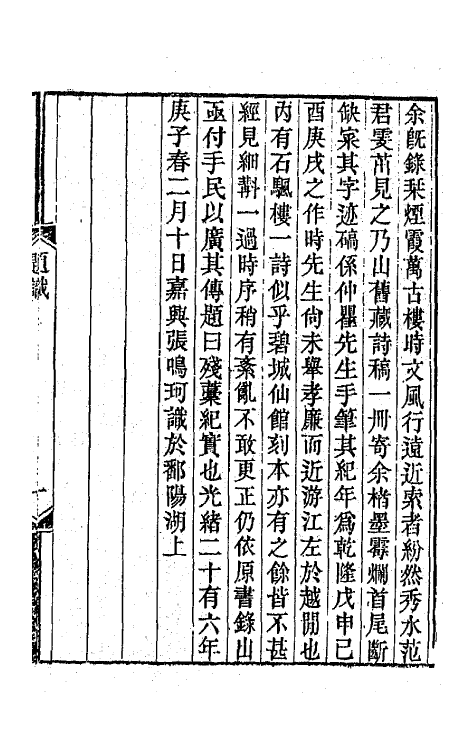 余既錄栞煙霞萬古樓時文風行遠近索者紛然秀水范
君雯莆見之乃山舊藏詩稿一冊寄余楮墨霉爛首尾斷
缺寀其字迹碻係仲瞿先生手筆其紀年爲乾隆戊申己
酉庚戌之作時先生尙未舉孝廉而近游江左於越閒也
內有石颿樓一詩似乎碧城仙館刻本亦有之餘皆不甚
經見細斠一過時序稍有紊亂不敢更正仍依原書錄出
亟付手民以廣其傳題曰殘藁紀實也光緒二十有六年
庚子春二月十日嘉興張鳴珂識於鄱陽湖上
題識
一